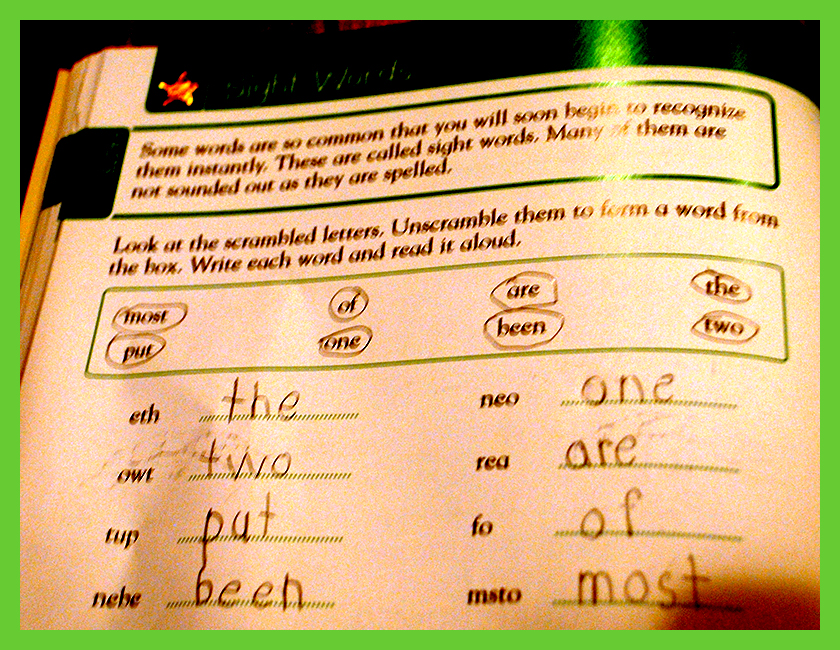 Sight Words
Some words are so common that you will soon begin to recognize
them instantly. These are called sight words. Many of them are
not sounded out as they are spelled.
Look at the scrambled letters. Unscramble them to form a word from
the box. Write each word and read it aloud.
most of are the
put one been two
eth the neo one
owt two rea are
tup put fo of
nebe been msto most